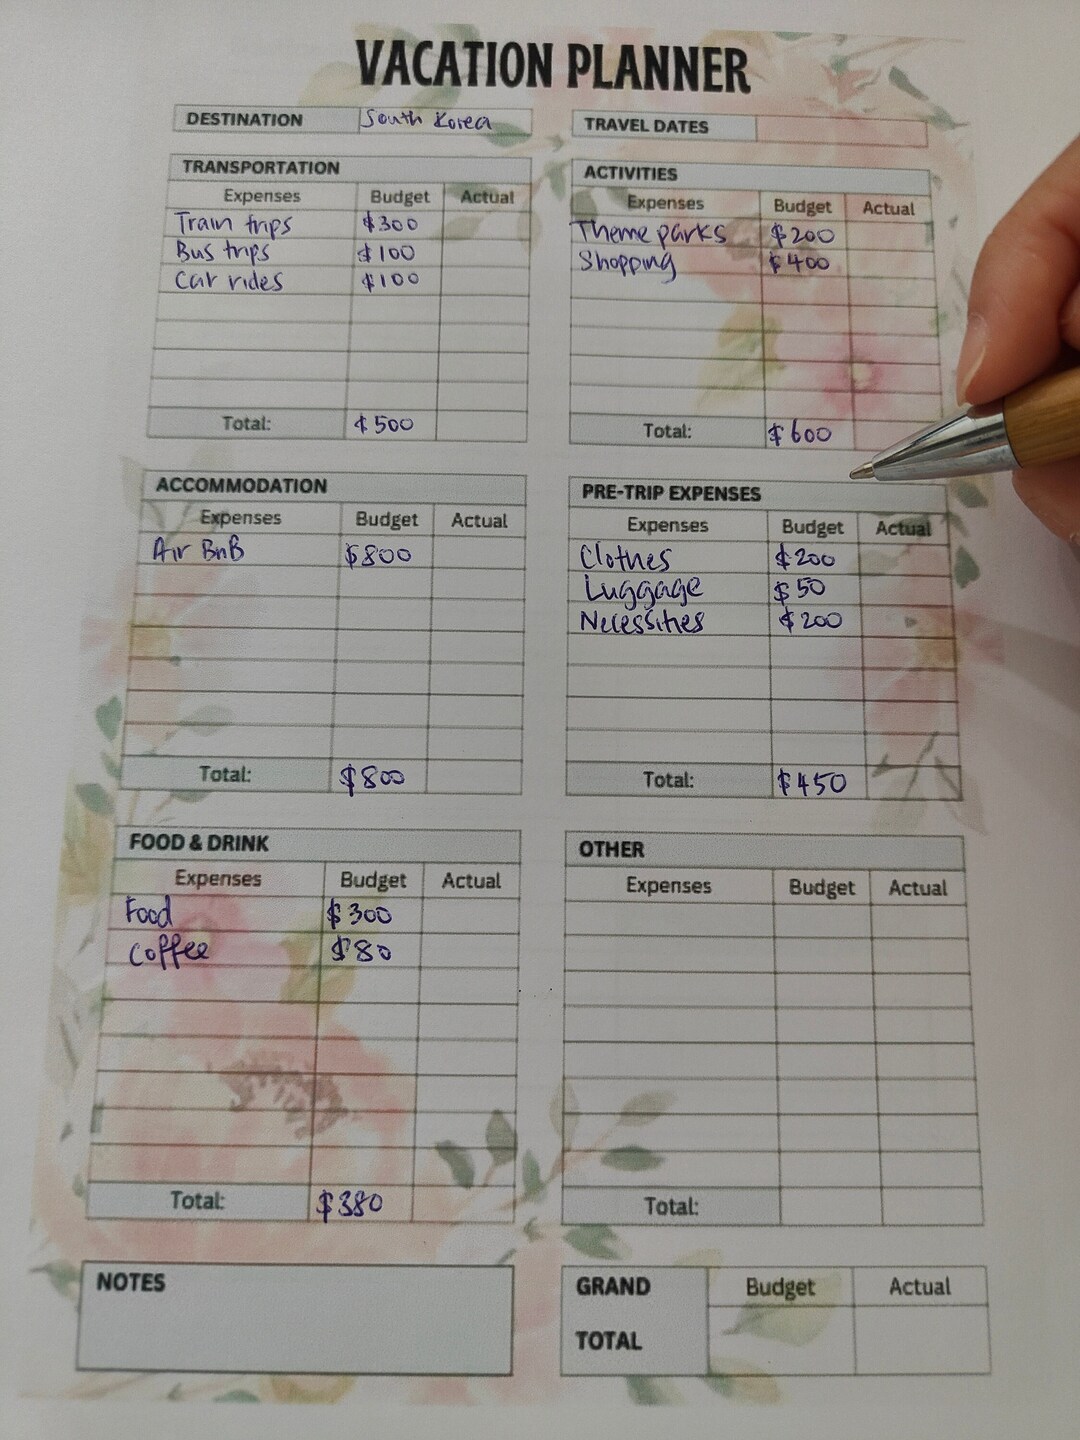 VACATION PLANNER
DESTINATION South Korea
TRAVEL DATES
TRANSPORTATION
Expenses Budget Actual
Train trips $300
Bus trips $100
Car rides $100
Total: $500
ACTIVITIES
Expenses Budget Actual
Theme parks $200
Shopping $400
Total: $600
ACCOMMODATION
Expenses Budget Actual
Air BnB $800
Total: $800
PRE-TRIP EXPENSES
Expenses Budget Actual
Clothes $200
Luggage $50
Necessities $200
Total: $450
FOOD & DRINK
Expenses Budget Actual
Food $300
Coffee $80
Total: $380
OTHER
Expenses Budget Actual
Total:
NOTES
GRAND TOTAL Budget Actual